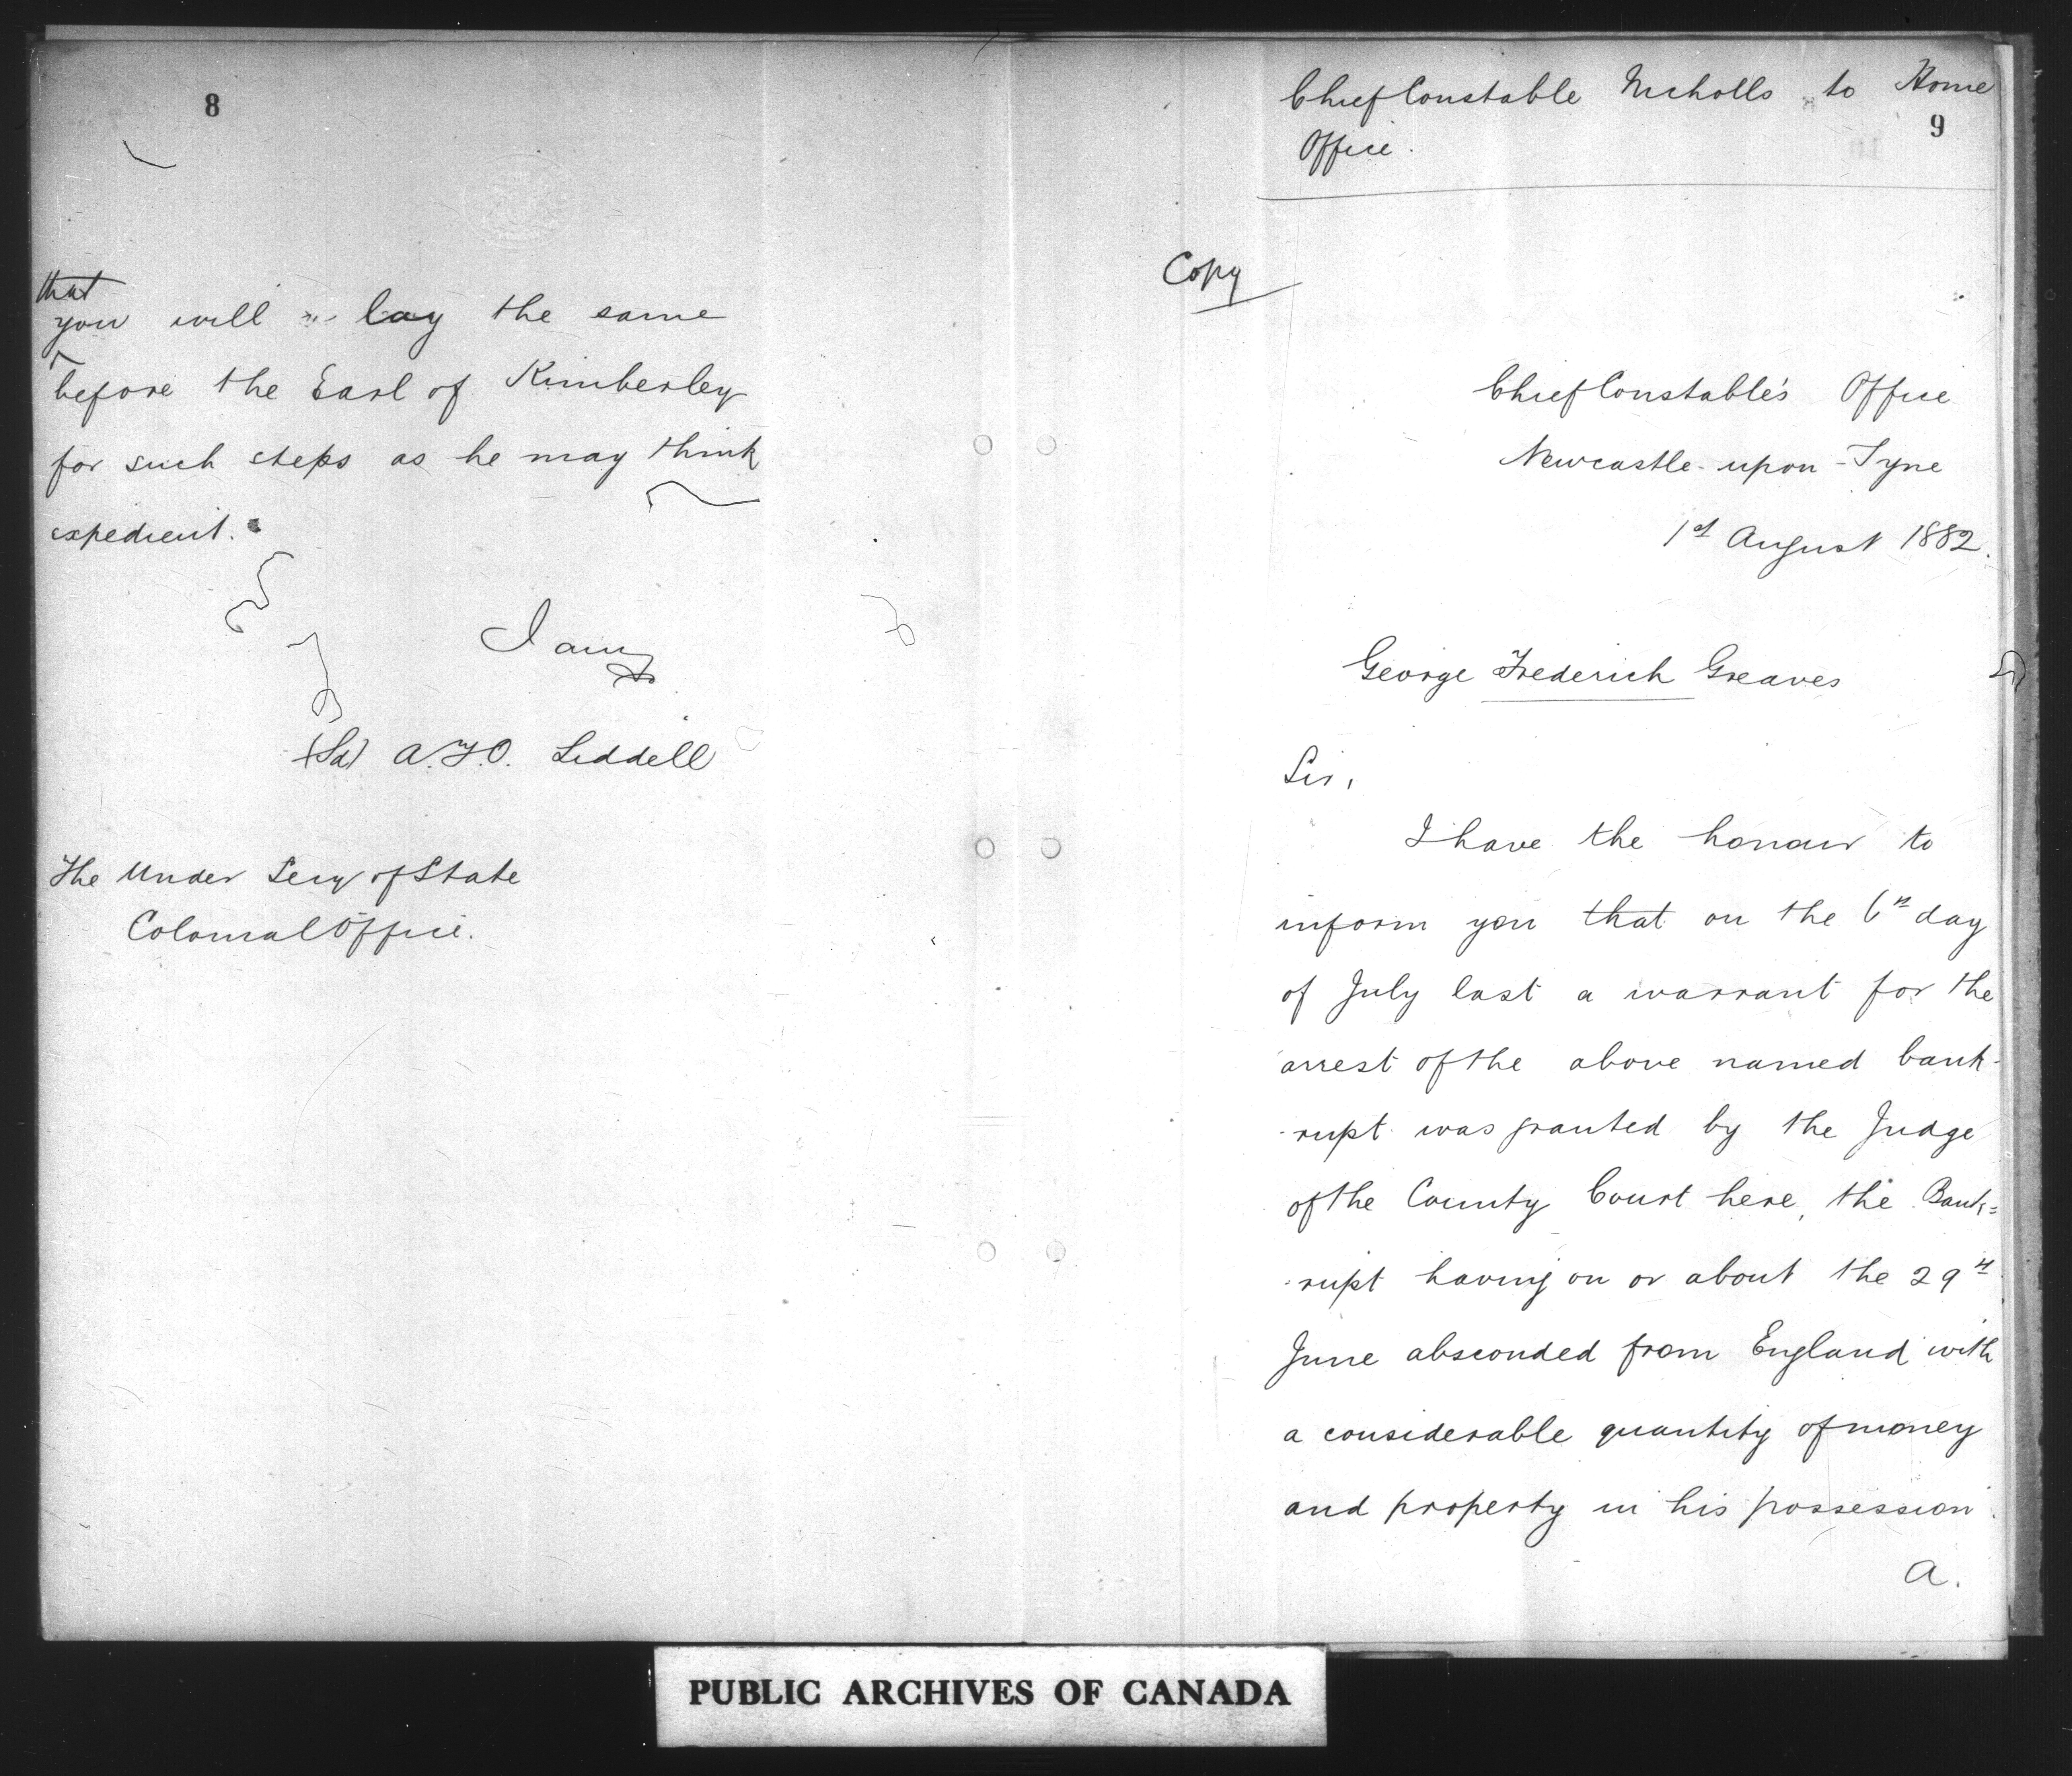 8
that
you will lay the same
before the Earl of Kimberley
for such steps as he may think
expedient.
I am
(Sd) A.F.O. Liddell
The Under Secy of State
Colonial Office.
Chief Constable Nicholls to Home
9
Office.
Copy
Chief Constable's Office
Newcastle-upon-Tyne
1st August 1882.
George Frederick Greaves
Sir,
I have the honour to
inform you that on the 6th day
of July last a warrant for the
arrest of the above named bank-
-rupt was granted by the Judge
of the County Court here, the Bank=
-rupt having on or about the 29th
June absconded from England with
a considerable quantity of money
and property in his possession.
A.
PUBLIC ARCHIVES OF CANADA